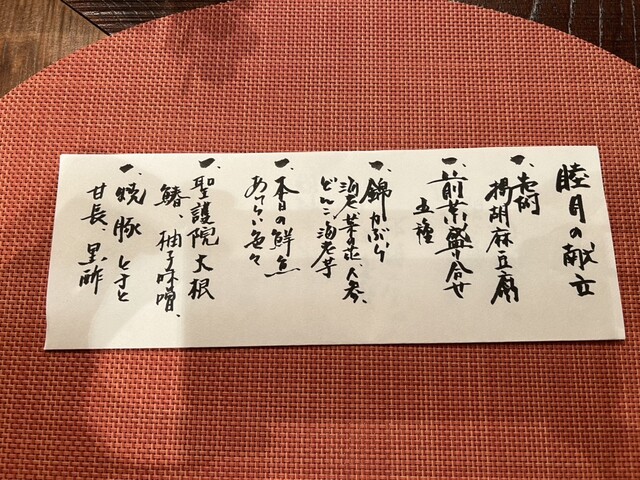 睦月の献立
一、壱肭
揚胡麻豆腐
一、前菜盛り合せ
五種
一、錦かぶら
海老、菜の花、人参、
どんこ、海老芋
一、本日の鮮魚
あしらい色々
一、聖護院大根
鰆、柚子味噌、
一、焼豚 とまと
甘長、黒酢